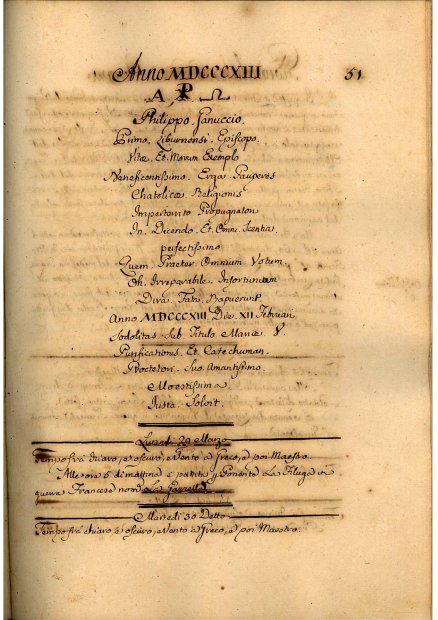 Anno MDCCCXIII 51
A ☧ Ω
Philippo. Ganuccio.
Primo. Liburnensi. Episcopo.
Vitæ. Et. Morum Exemplo
Beneficentissimo. Erga. Pauperes
Chatolicæ Religionis
Imperterrito Propugnatori
In. Dicendo. Et. Omni. Scentia.
perfectissimo
Quem. Praeter. Omnium. Votum.
Oh. Irreparabile. Infortunium
Dira. Fata. Rapuerunt
Anno MDCCCXIII Die. XII Februari
Sodolitas. Sub. Titulo. Mariæ V.
Purificationis. Et. Catechuman.
Protectori. Suo. Amantissimo.
Moestissima
Iusta. Solvit.
Lunedì 29 Marzo
Tempo frà chiaro, e oscuro, e Vento a Greco, e poi Maestro.
Alle ore 5 di mattina è partita p Ponente La Filuga di
guerra Francese nom.
Martedì 30 Detto
Tempo frà chiaro e oscuro, e Vento a Greco, e poi Maestro.